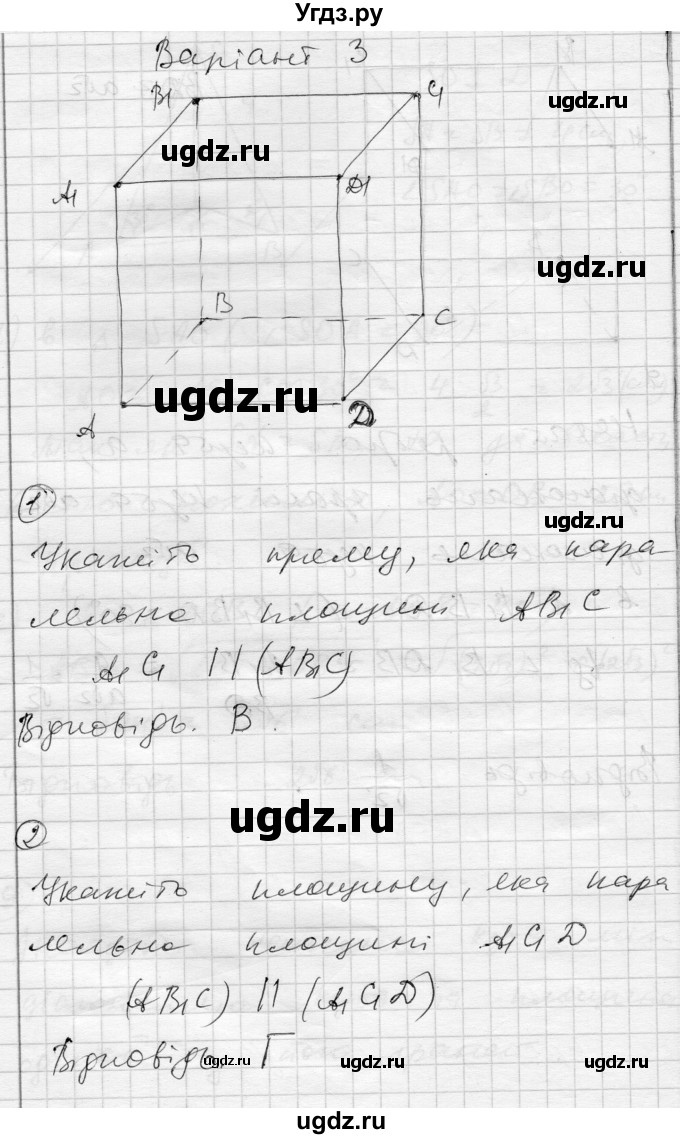 Угдз.ру
Варіант 3
B₁ C₁
ugdz.ru
ugdz.ru
A₁ D₁
ugdz.ru
B C
ugdz.ru
A D
1
ugdz.ru
Укажіть пряму, яка пара
лельна площині AB₁C
A₁C₁ || (AB₁C)
Відповідь. В.
ugdz.ru
2
Укажіть площину, яка пара
лельна площині A₁C₁D
(AB₁C) || (A₁C₁D)
Відповідь Г
ugdz.ru ugdz.ru ugdz.ru
ugdz.ru